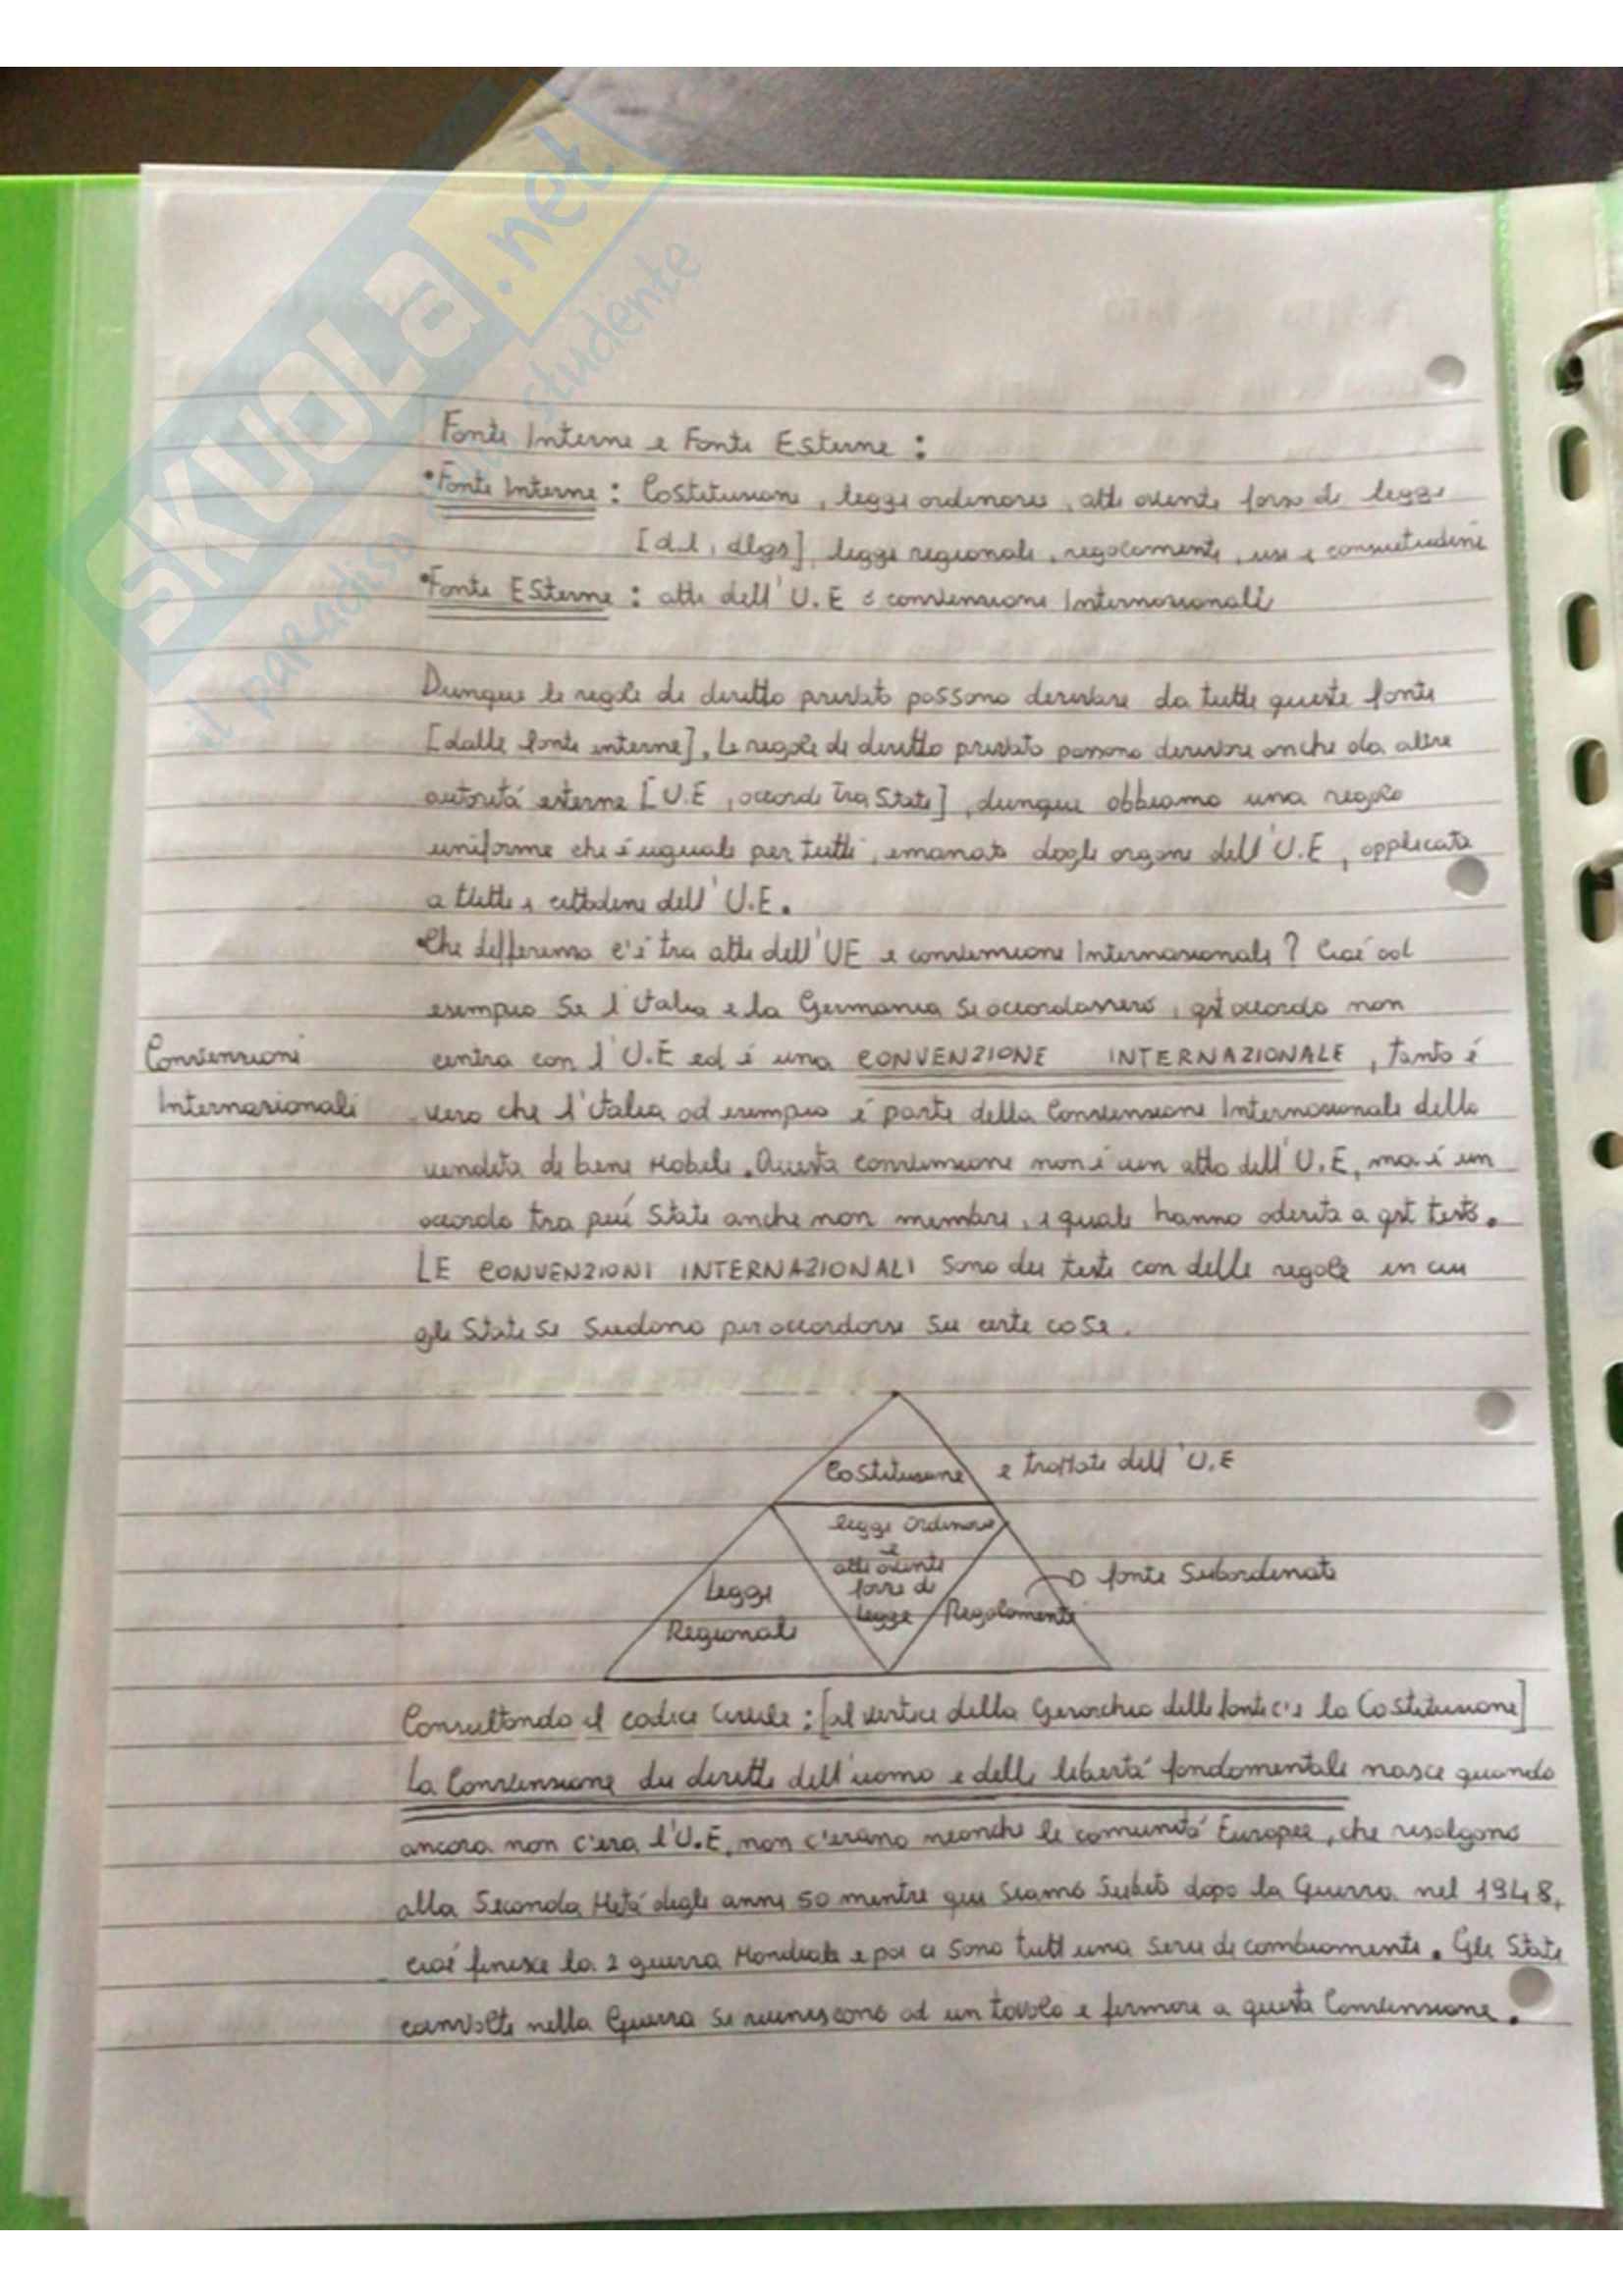 SKUOLA.net
il paradiso dello studente
Fonti Interne e Fonti Esterne :
• Fonti Interne : Costituzione, leggi ordinarie, atti aventi forza di legge
[d.l, dlgs], leggi regionali, regolamenti, usi e consuetudini
• Fonti ESterne : atti dell'U.E e convenzione Internazionali
Dunque le regole di diritto privato possono derivare da tutte queste fonti
[dalle fonti interne]. Le regole di diritto privato possono derivare anche da altre
autoritá esterne [U.E, accordi tra Stati], dunque abbiamo una regola
uniforme che é uguale per tutti, emanata dagli organi dell'U.E, applicata
a tutti i cittadini dell'U.E.
• Che differenza c'é tra atti dell'UE e convenzione Internazionali ? Cioé ad
esempio Se l'Italia e la Germania Si accordassero, qst accordo non
Convenzioni
centra con l'U.E ed é una CONVENZIONE INTERNAZIONALE, tanto é
Internazionali
vero che l'Italia ad esempio é parte della Convenzione Internazionale della
vendita di beni Mobili. Questa convenzione non é un atto dell'U.E, ma é un
accordo tra piú Stati anche non membri, i quali hanno aderito a qst testo.
LE CONVENZIONI INTERNAZIONALI Sono dei testi con delle regole in cui
gli Stati Si Siedono per accordarsi Su certe coSe.
Costituzione e trattati dell'U.E
leggi ordinarie
e
atti aventi
forza di
legge
Leggi
Regionali
Regolamenti
fonti Subordinate
Consultando il codice Civile : [al vertice della Gerarchia delle fonti c'é la Costituzione]
La Convenzione dei diritti dell'uomo e delle libertá fondamentali nasce quando
ancora non c'era l'U.E, non c'erano neanche le comunitá Europee, che risalgono
alla Seconda Metá degli anni 50 mentre qui Siamo Subito dopo la Guerra nel 1948,
cioé finisce la 2 guerra Mondiale e poi ci Sono tutt una Serie di cambiamenti. Gli Stati
coinvolti nella Guerra Si riuniscono ad un tavolo e firmare a questa Convenzione.